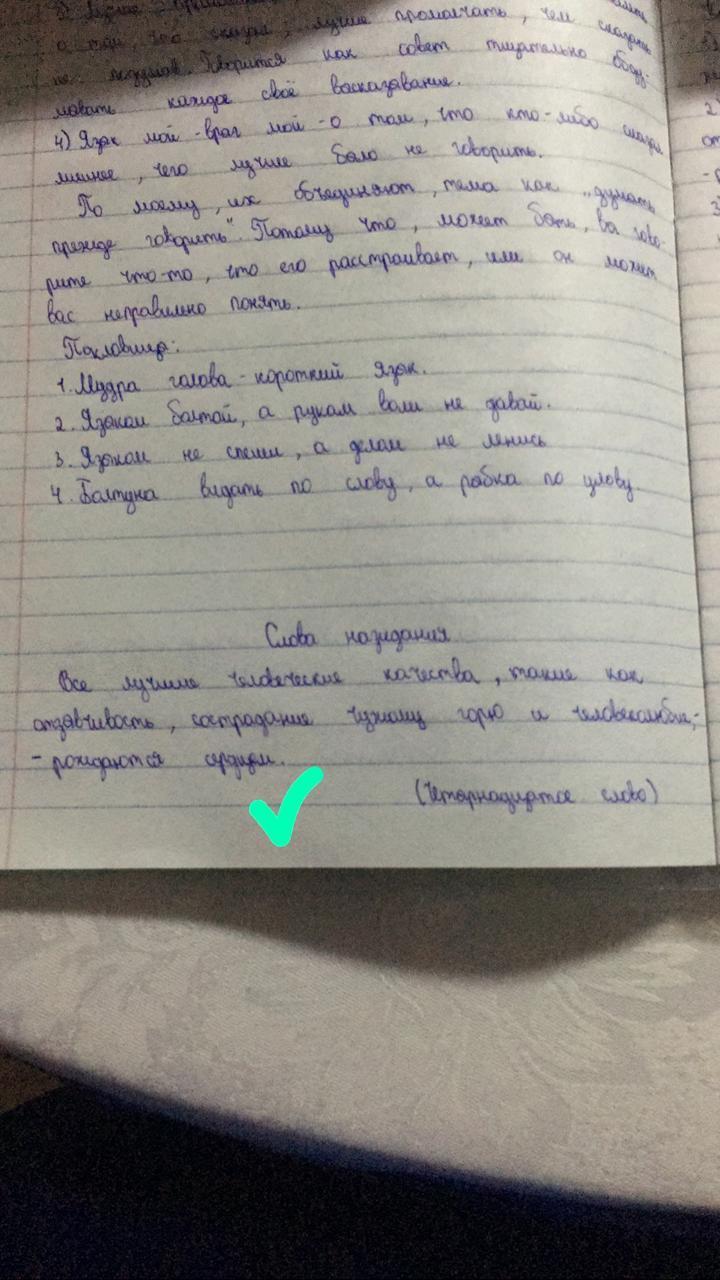 о том, что сказал, лучше промолчать, чем сказать
не подумав. Говорится как совет тщательно обду-
мовать каждое своё высказывание.
4) Язык мой - враг мой - о том, что кто-либо сказал
лишнее, чего лучше было не говорить.
По моему, их объединяют, тема как „думать
прежде говорить". Потому что, может быть, вы гово-
рите что-то, что его расстраивает, или он может
вас неправильно понять.
Пословица:
1. Мудра голова - короткий язык.
2. Языком болтай, а рукам воли не давай.
3. Языком не спеши, а делом не ленись
4. Болтуна видать по слову, а рыбка по улову
Слова назидания
Все лучшие человеческие качества, такие как
отзывчивость, сострадание чужому горю и человеколюбие,
- рождаются сердцем.
(Четырнадцатое слово)